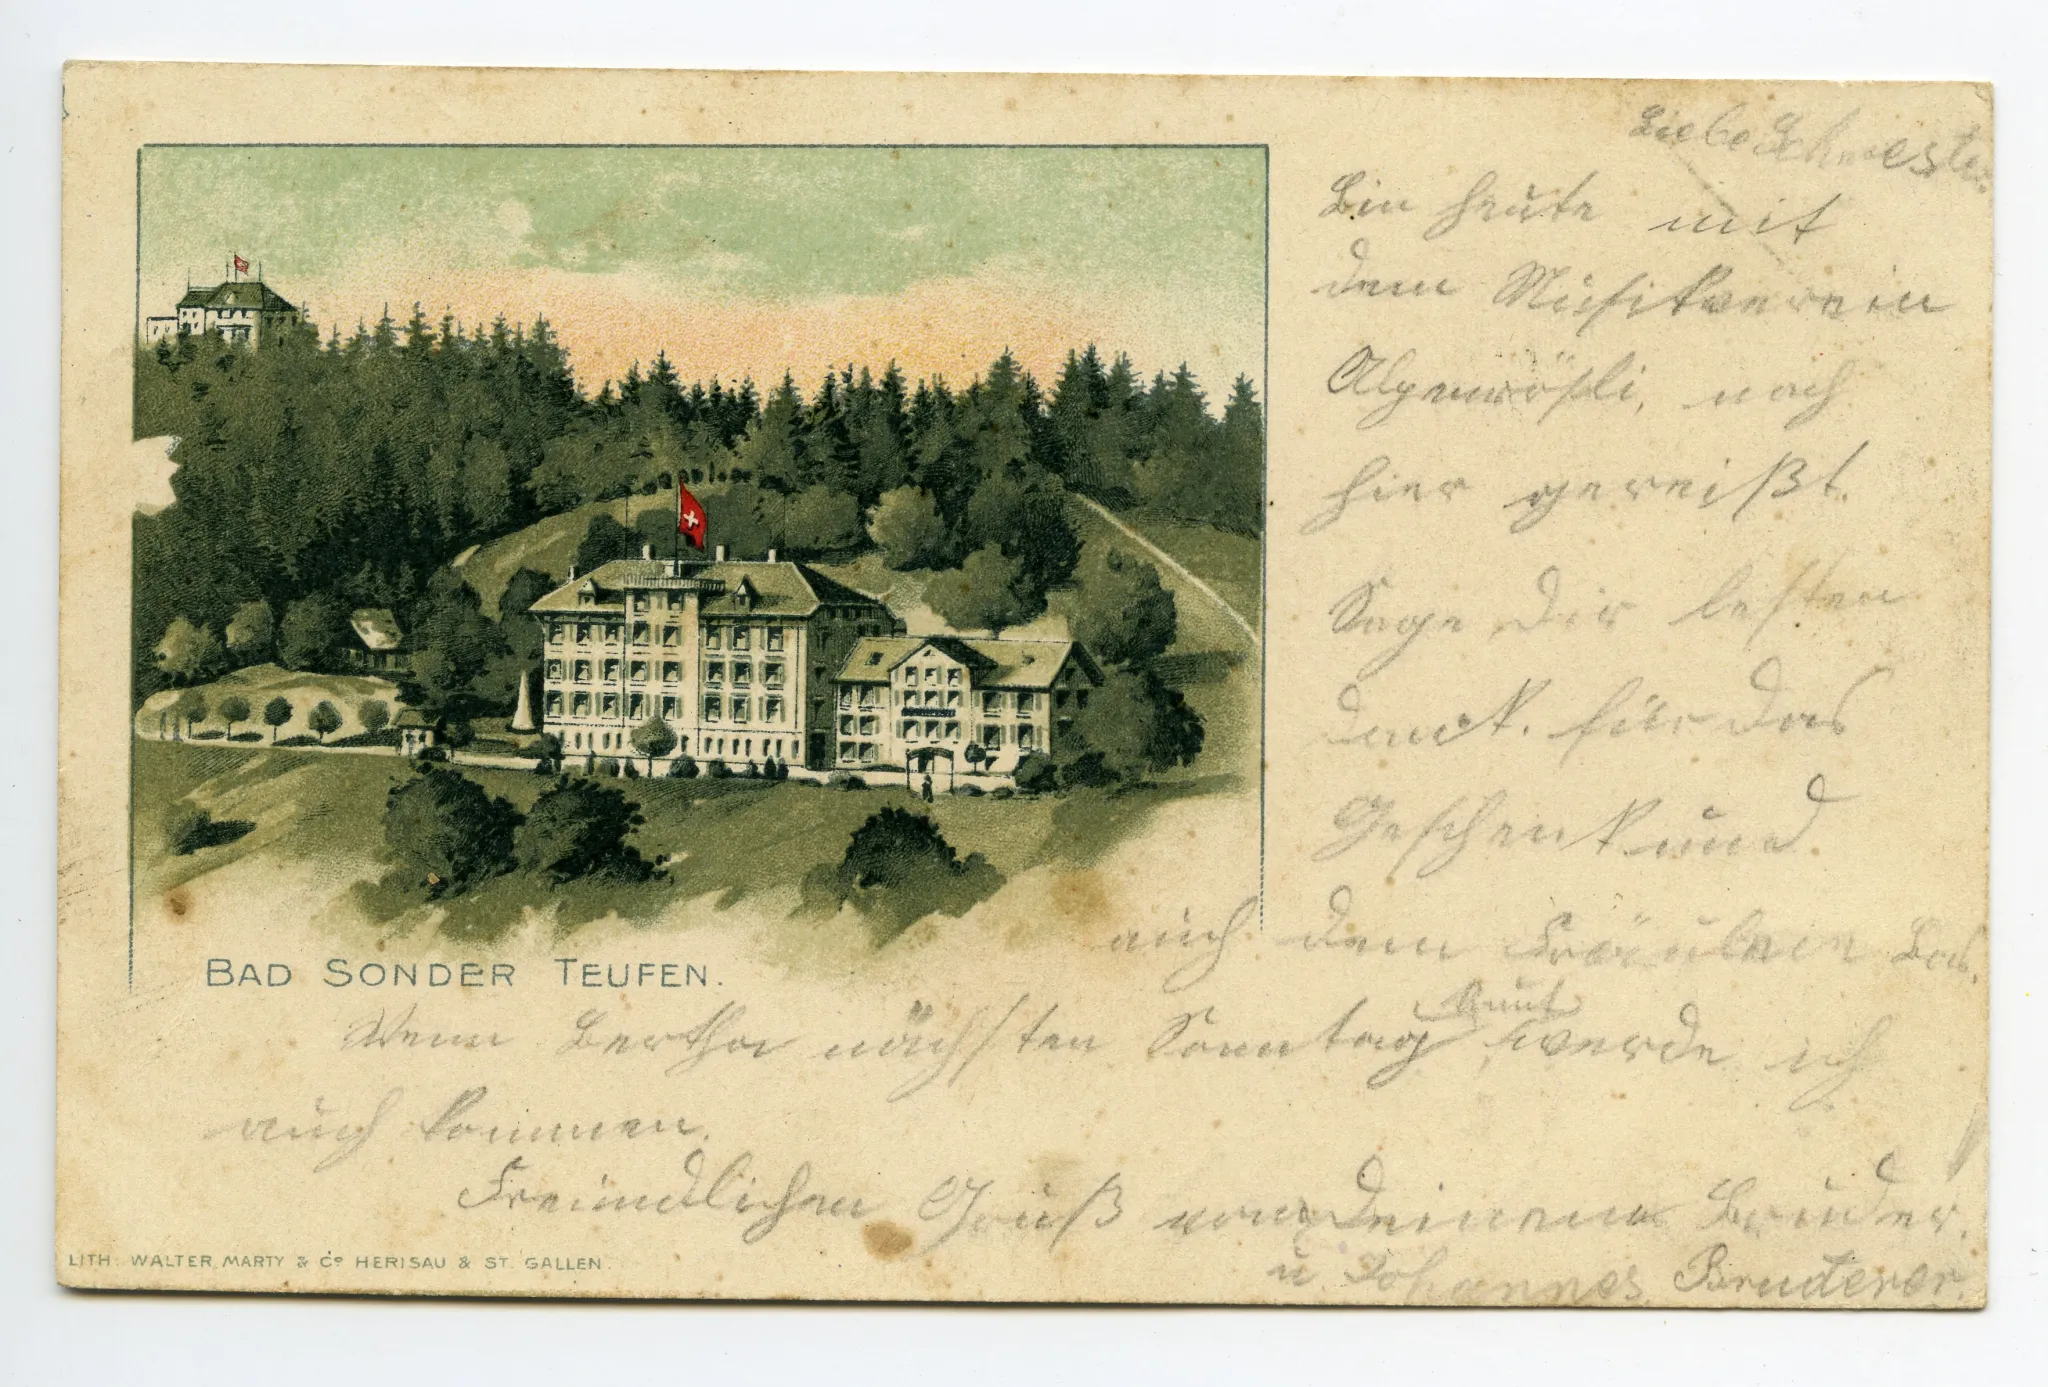 Liebe Schwester
Bin heute mit
dem Musikverein
Alpenrösli, nach
hier gereißt.
Sage Dir besten
Dank. für das
Geschenk und
auch dem Fräulein
BAD SONDER TEUFEN.
kunt
Wenn Bertha nächsten Sonntag, werde ich
auch kommen.
Freundlichen Gruß von Deinem Bruder.
LITH. WALTER MARTY & Co HERISAU & ST. GALLEN.
u. Johannes Bruderer.